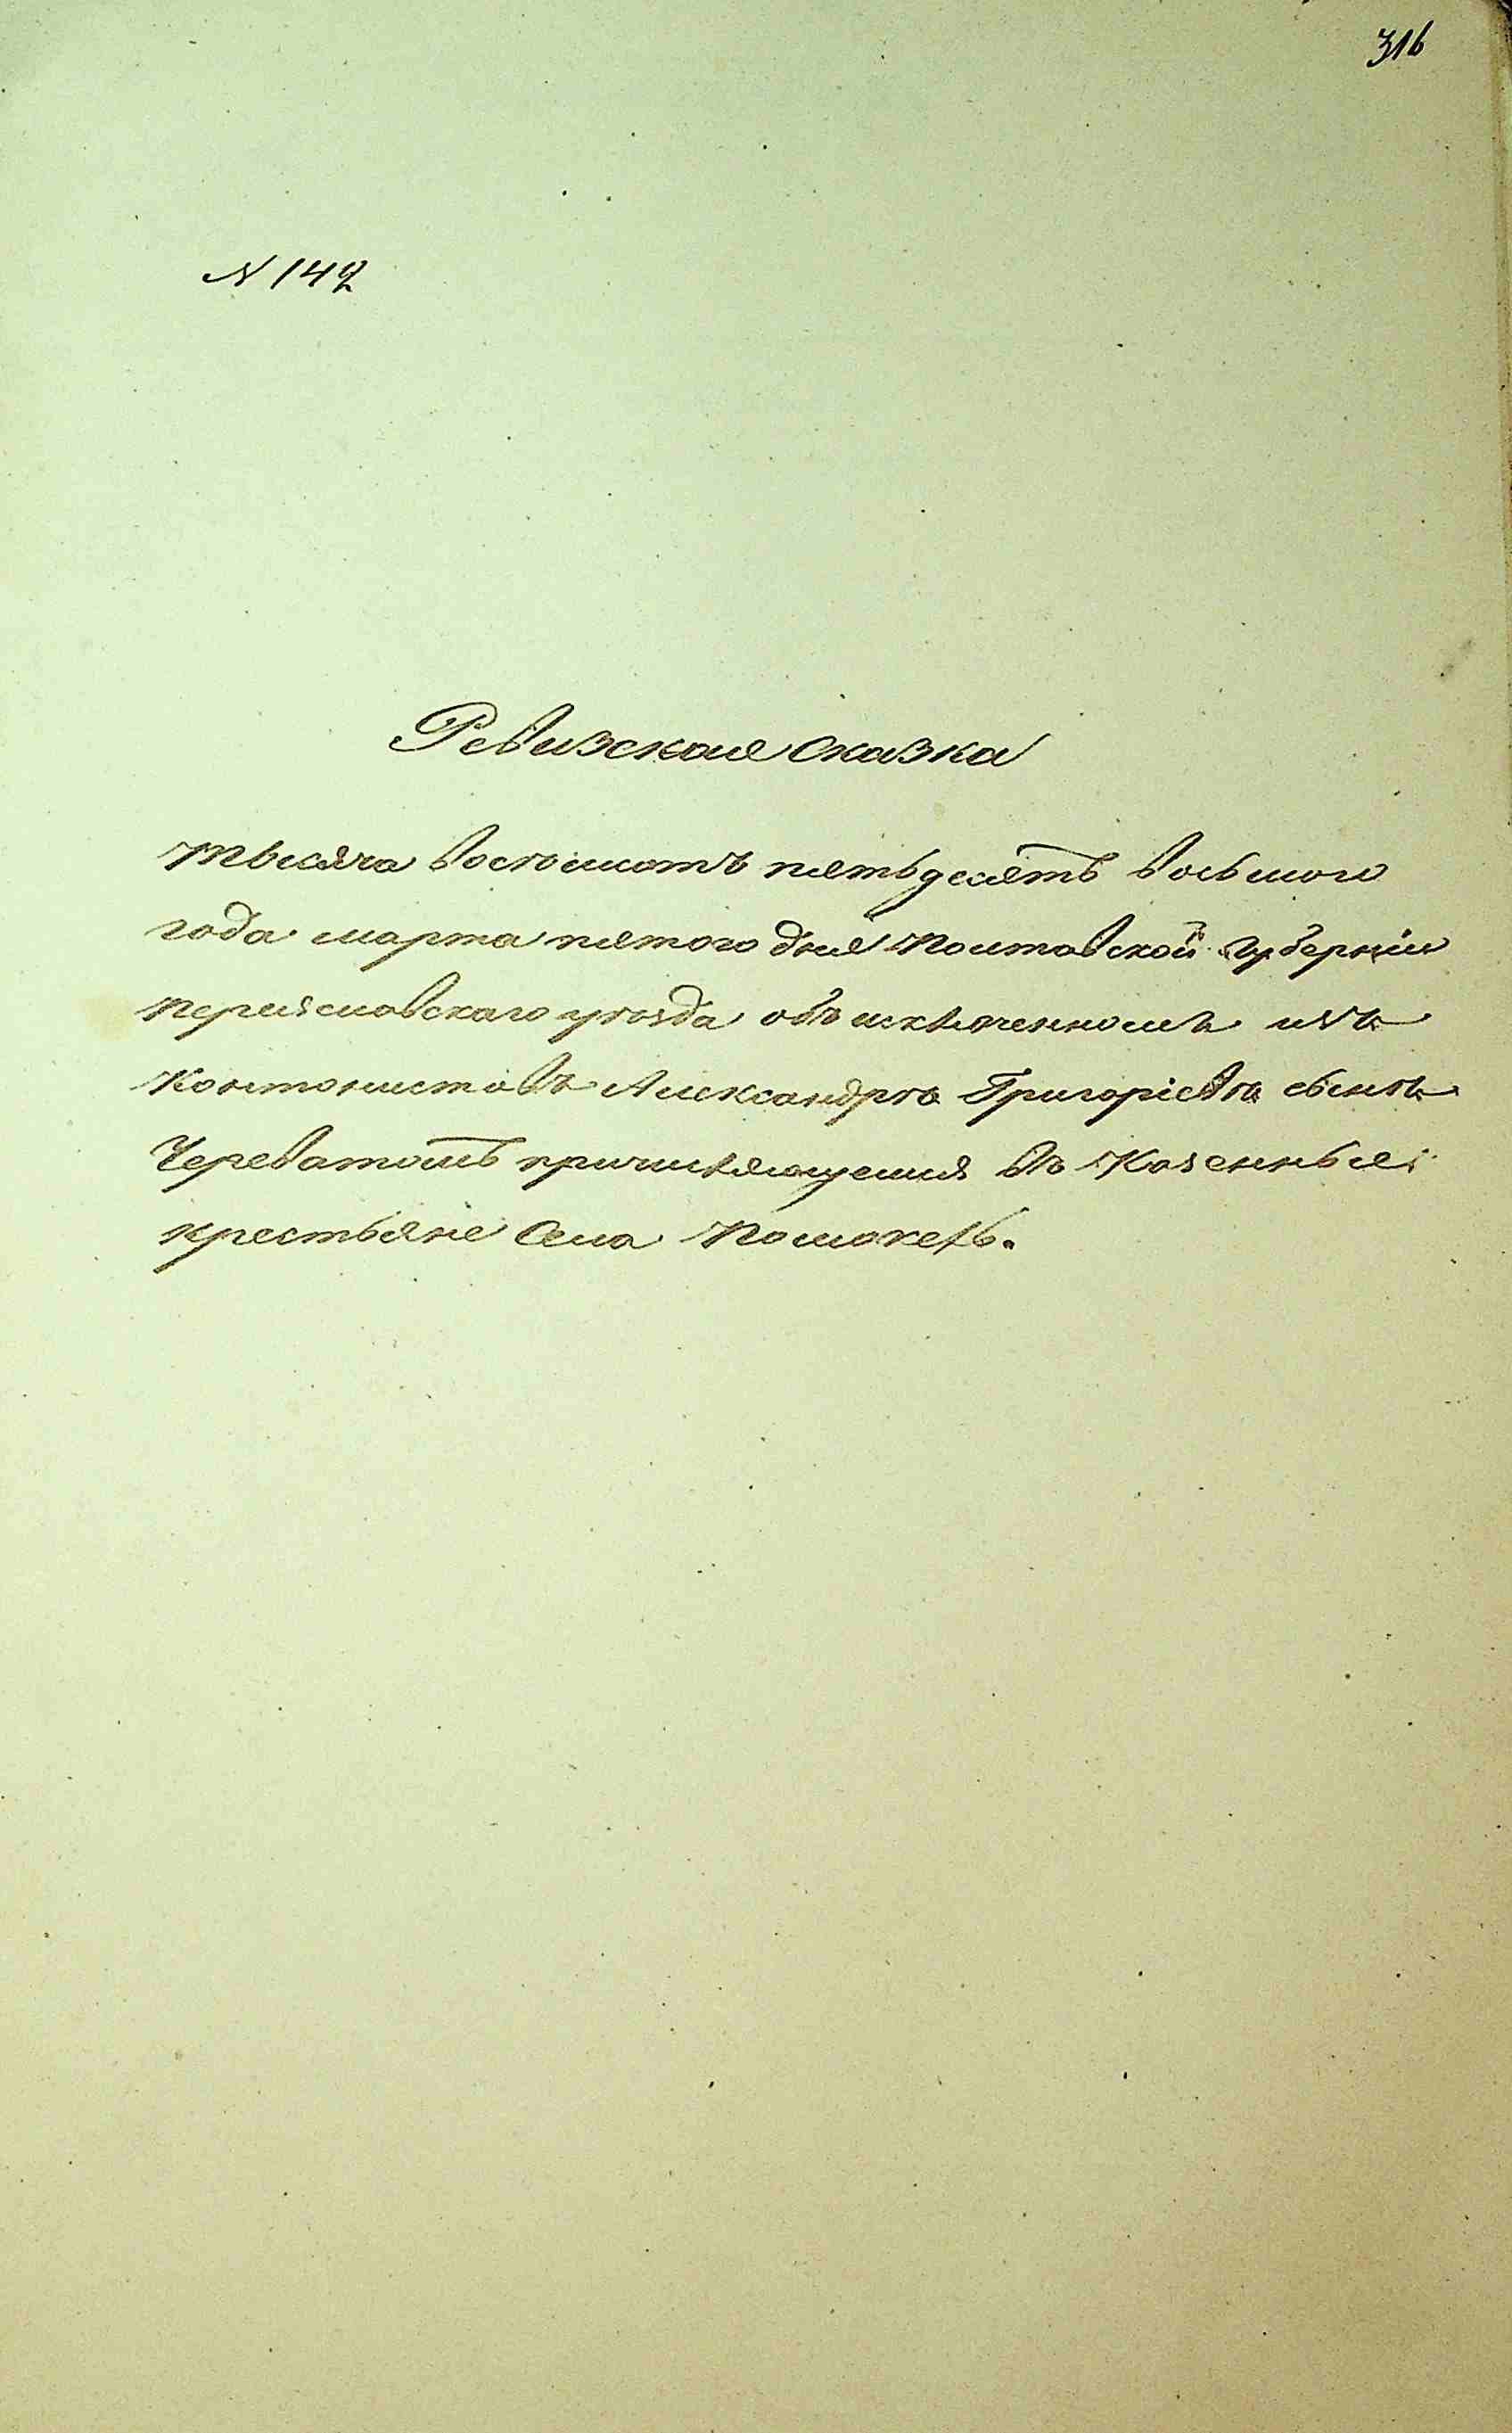 316
N 142
Ревизская сказка
тысяча восемьсотъ пятьдесятъ восьмого
года марта пятого дня Полтавской губерніи
Переяславскаго уѣзда объ исключенномъ изъ
Кантонистовъ Александрѣ Григоріевѣ сынѣ
Череватомъ причисляющемся въ Казенные
крестьяне села Помоклъ.